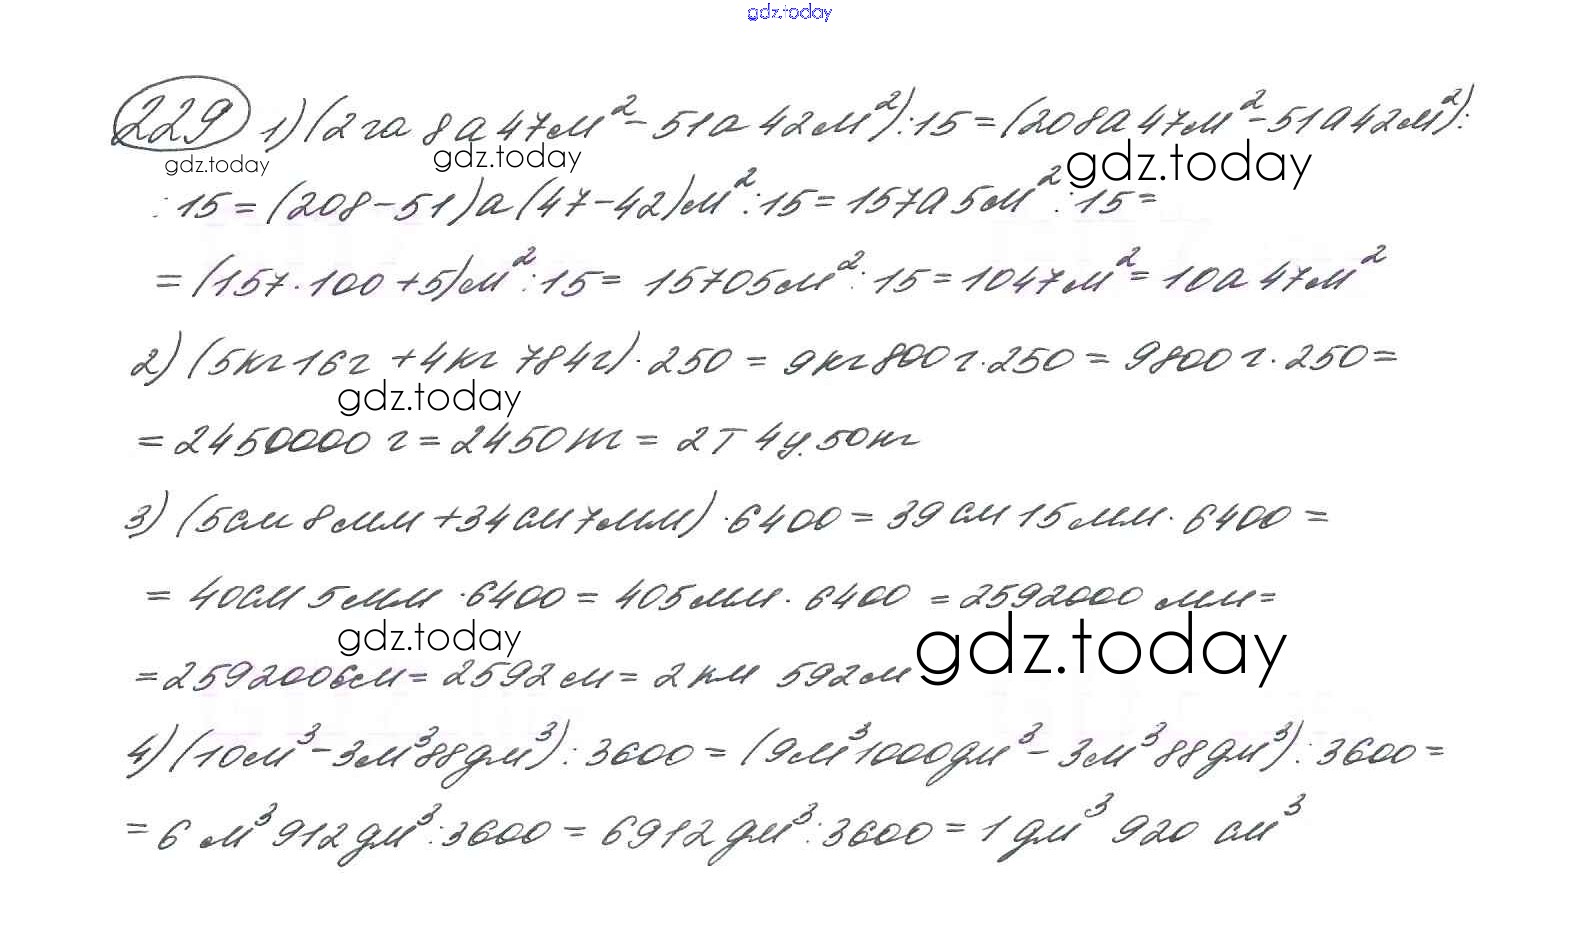 gdz.today
229 1) (2 га 8 а 47 м² - 51 а 42 м²) : 15 = (208 а 47 м² - 51 а 42 м²) :
gdz.today gdz.today gdz.today
: 15 = (208 - 51) а (47 - 42) м² : 15 = 157 а 5 м² : 15 =
= (157 · 100 + 5) м² : 15 = 15705 м² : 15 = 1047 м² = 10 а 47 м²
2) (5 кг 16 г + 4 кг 784 г) · 250 = 9 кг 800 г · 250 = 9800 г · 250 =
gdz.today
= 2450000 г = 2450 кг = 2 т 4 ц 50 кг
3) (5 см 8 мм + 34 см 7 мм) · 6400 = 39 см 15 мм · 6400 =
= 40 см 5 мм · 6400 = 405 мм · 6400 = 2592000 мм =
gdz.today gdz.today
= 259200 см = 2592 м = 2 км 592 м
4) (10 м³ - 3 м³ 88 дм³) : 3600 = (9 м³ 1000 дм³ - 3 м³ 88 дм³) : 3600 =
= 6 м³ 912 дм³ : 3600 = 6912 дм³ : 3600 = 1 дм³ 920 см³